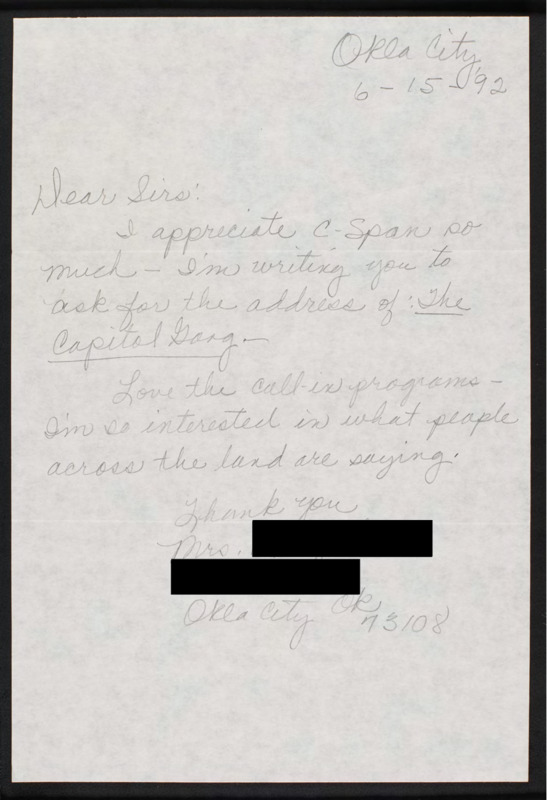 Okla City,
6-15-92
Dear Sirs:
I appreciate C-Span so
much - I'm writing you to
ask for the address of: The
Capitol Gang.-
Love the call-in programs -
I'm so interested in what people
across the land are saying.
Thank you
Mrs.
Okla City Ok
73108